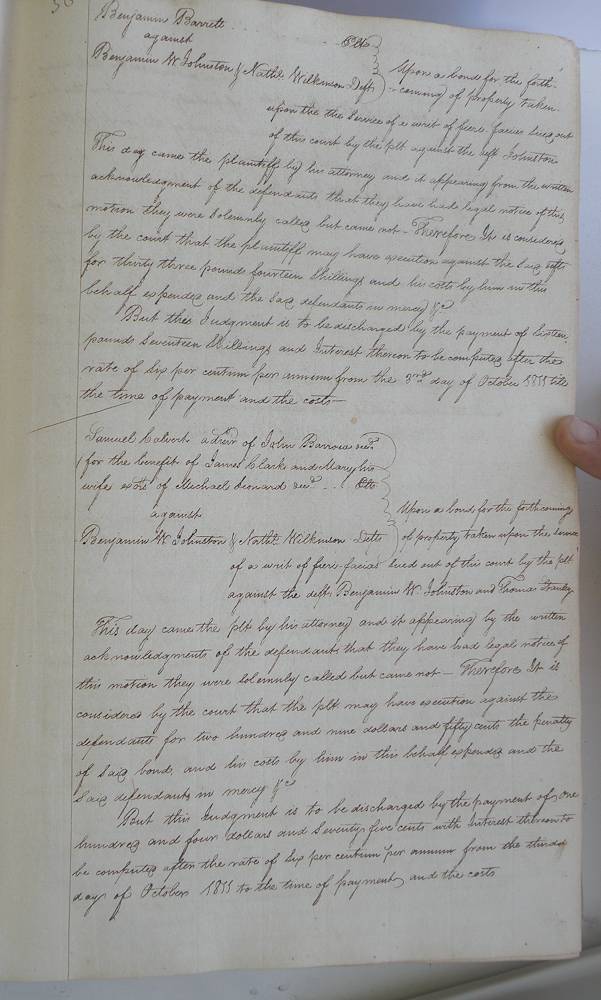 Benjamin Barrett
against Plts
Benjamin W Johnston & Nathl. Wilkinson Defts Upon a bond for the forth-
-coming of property taken
upon the the Service of a writ of fiere facias sued out
of this court by the plt against the deft Johnston
This day came the plaintiff by his attorney and it appearing from the written
acknowledgment of the defendants that they have had legal notice of this
motion they were Solemnly called but came not - Therefore It is considered
by the court that the plaintiff may have execution against the Said defts
for thirty three pounds fourteen Shillings and his costs by him in this
behalf expended and the Said defendants in mercy &c
But this Judgment is to be discharged by the payment of Sixteen
pounds Seventeen Shillings and Interest thereon to be computed after the
rate of Six per centum per annum from the 3rd day of October 1811 till
the time of payment and the costs
Samuel Calvert of John Barrow decd.
for the benefit of James Clark and Mary his
wife exors of Michael Leonard decd Plts
against Upon a bond for the forthcoming
Benjamin W Johnston & Nathl. Wilkinson Defts of property taken upon the Service
of a writ of fieri-facias sued out of this court by the plt
against the deft Benjamin W. Johnston and Thomas
This day came the plt by his attorney and it appearing by the written
acknowledgments of the defendants that they have had legal notice of
this motion they were solemnly called but came not - Therefore It is
considered by the court that the plt may have execution against the
defendants for two hundred and nine dollars and fifty cents the penalty
of Said bond, and his costs by him in this behalf expended and the
Said defendants in mercy &c
But this Judgment is to be discharged by the payment of One
hundred and four dollars and Seventy five cents with interest thereon to
be computed after the rate of Six per centum per annum from the third
day of October 1811 to the time of payment and the costs